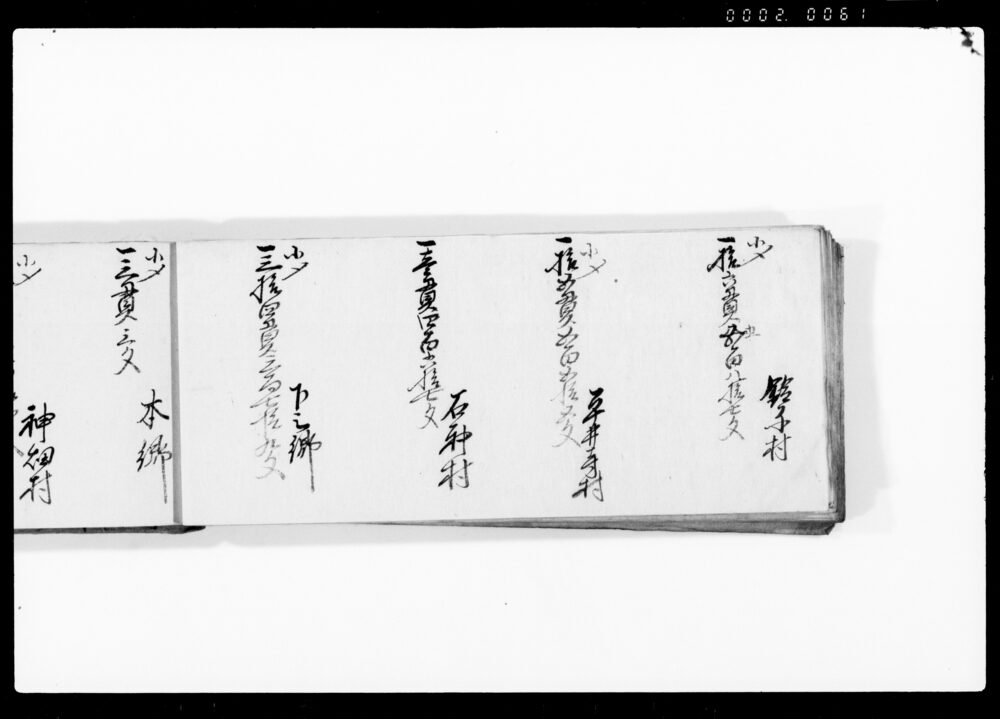 0002. 0061
小夕
一拾六貫五百八拾七文
鈴子村
小夕
一拾五貫五百五拾五文
平井寺村
一壱貫四百六拾七文
石神村
小夕
一三拾四貫三百七拾九文
下之郷
小夕
一三貫三文
本郷
小夕
神畑村